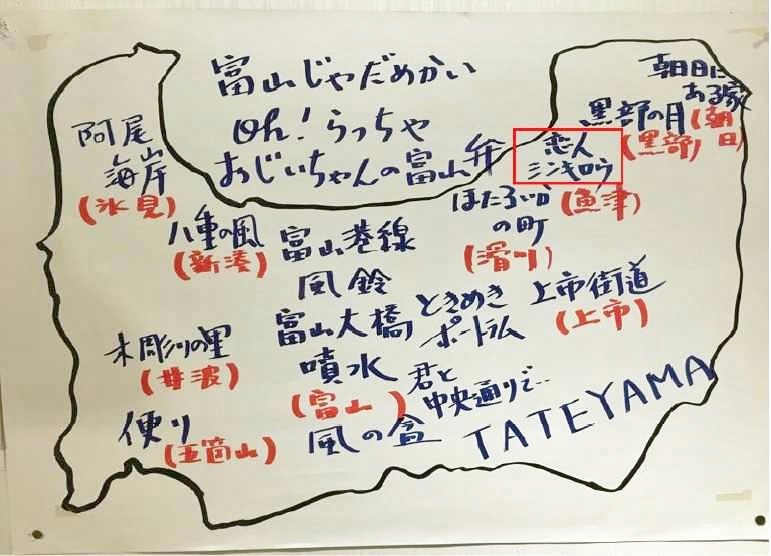 富山じゃだめかい
Oh!らっちゃ
おじいちゃんの富山弁
朝日に
ある家
(朝日)
黒部の月
(黒部)
恋人
シンキロウ
(魚津)
阿尾
海岸
(氷見)
八重の風
(新湊)
富山港線
風鈴
ほたるいか
の町
(滑川)
富山大橋
噴水
(富山)
ときめき
ポートラム
上市街道
(上市)
木彫りの里
(井波)
君と
中央通りで‥
便り
(五箇山)
風の盆
TATEYAMA